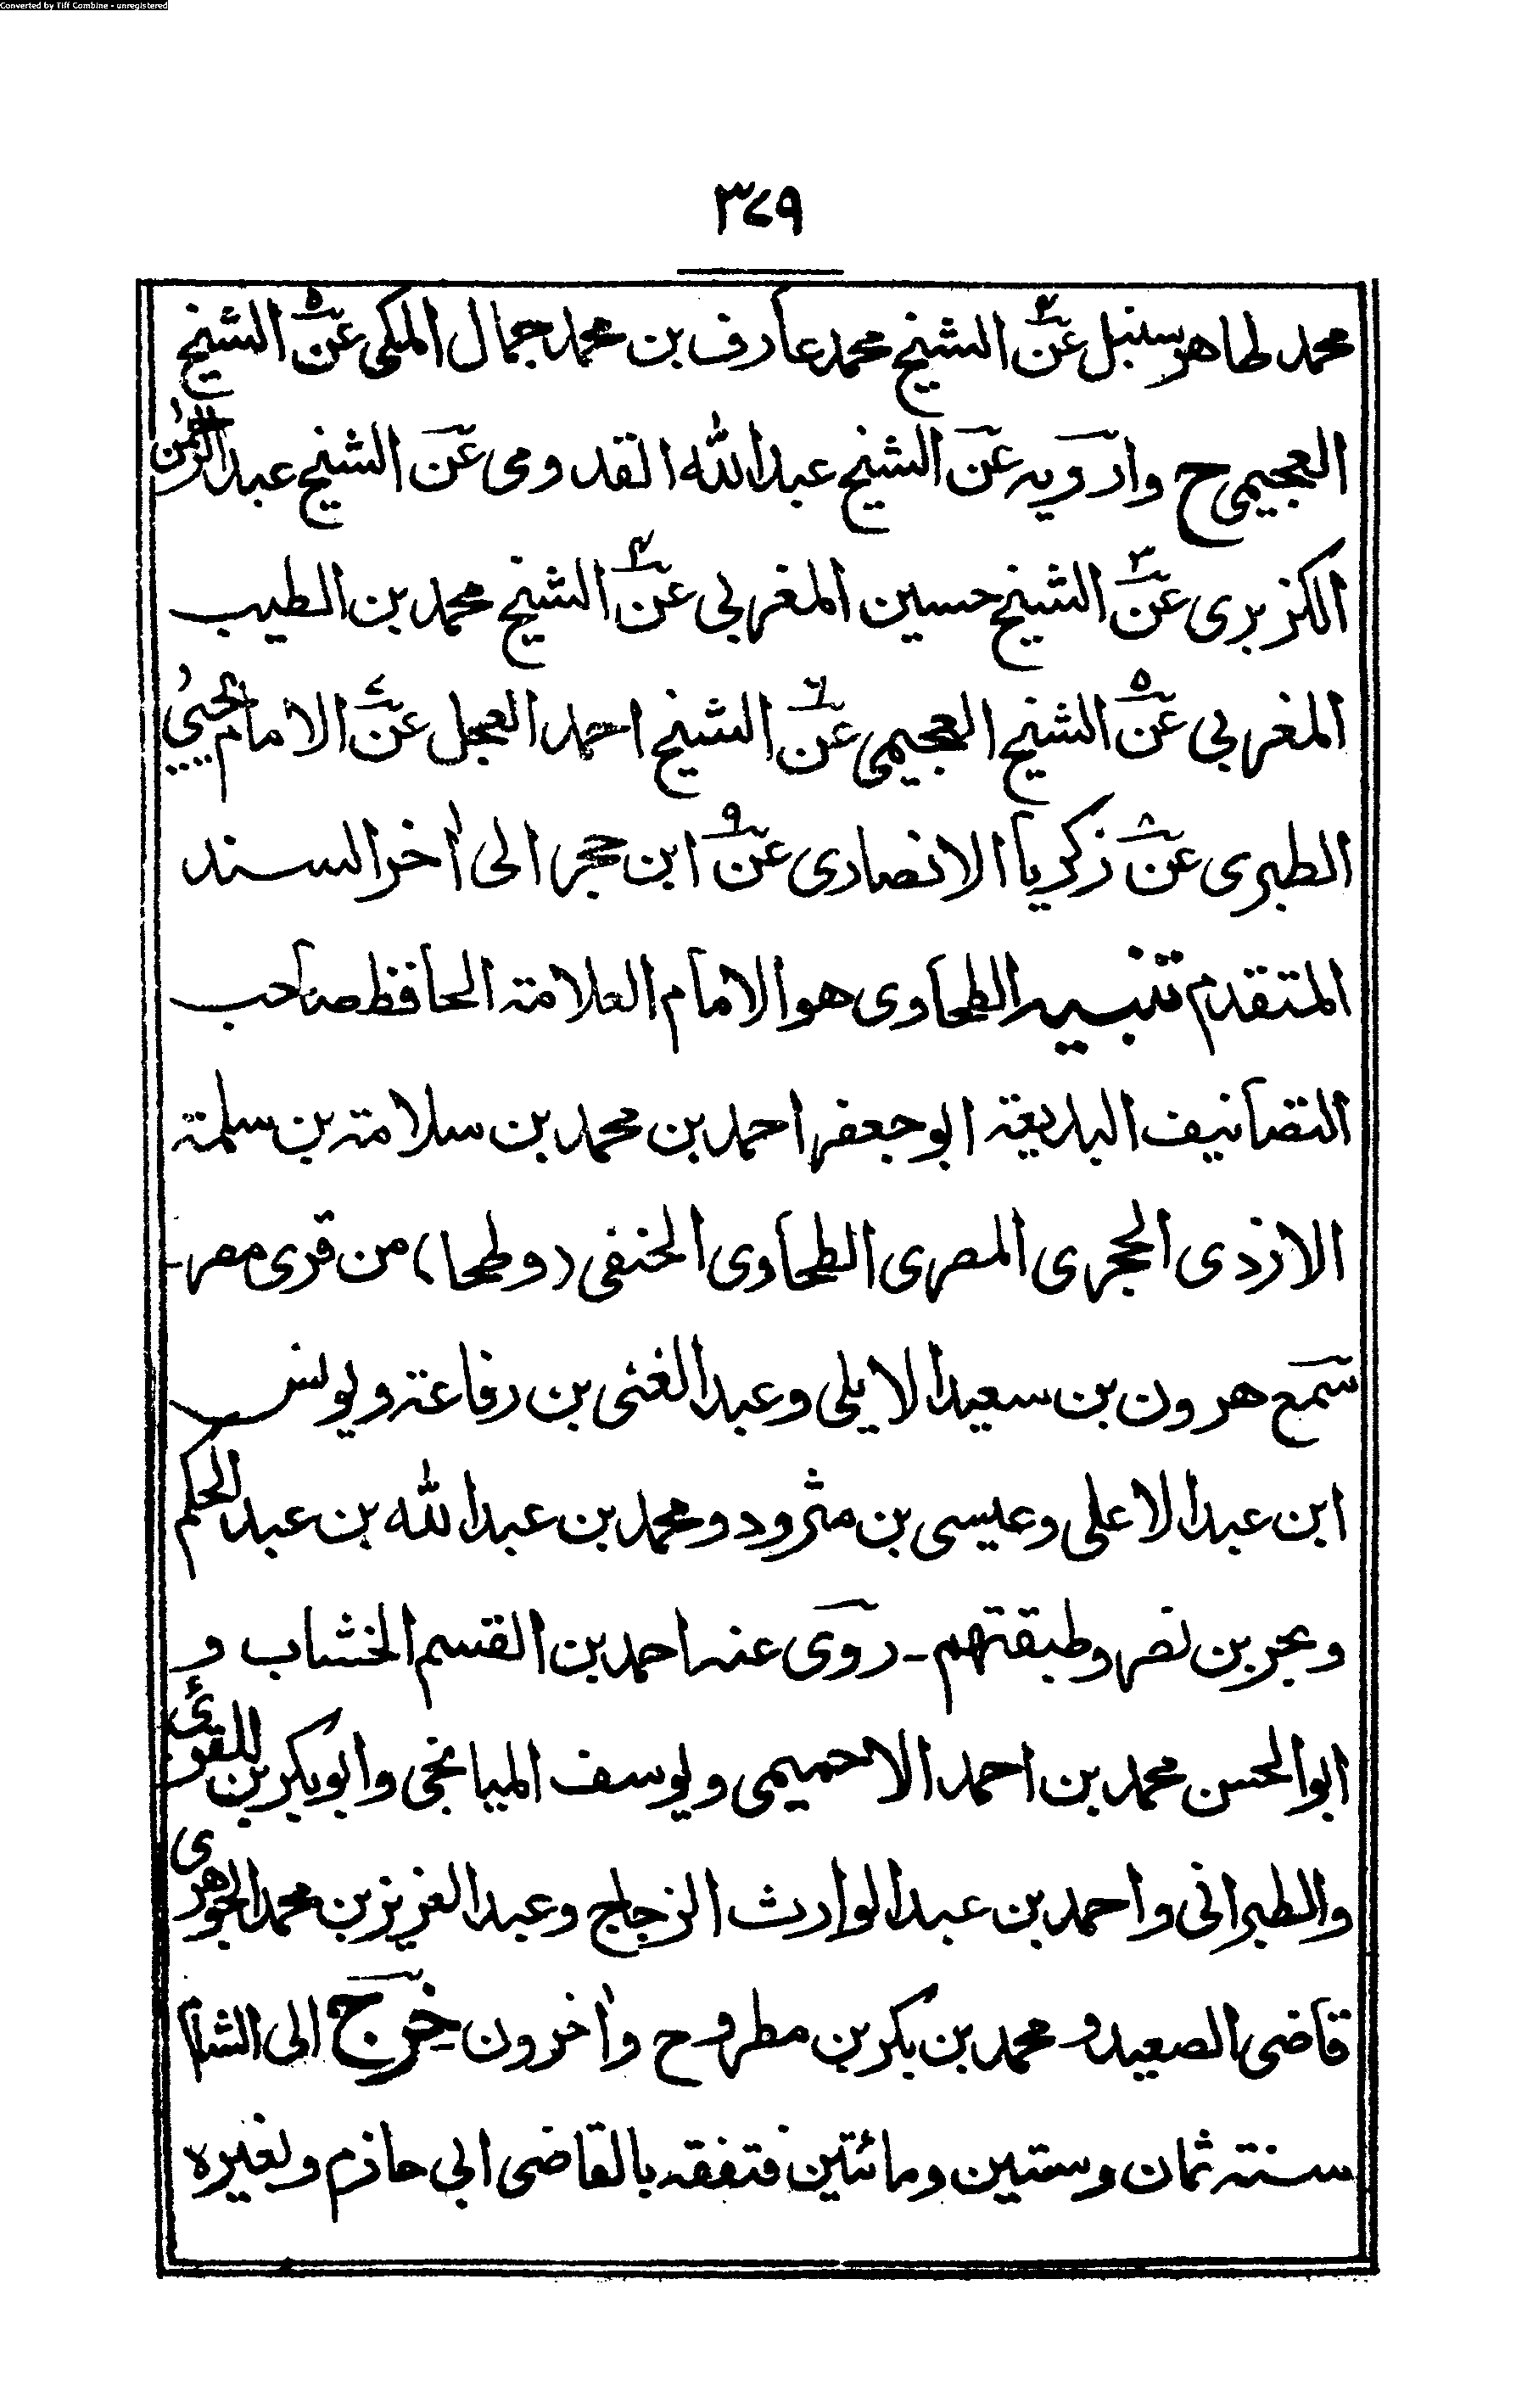 Converted by Tiff Combine - unregistered
٣٧٩
محمد طاهر سنبل عن۴ الشيخ محمد عارف بن محمد جمال المكى عن۵ الشيخ
العجيمى ح وارويه عن الشيخ عبد الله القدومى عن الشيخ عبد الرحمٰن
الكزبرى عن۳ الشيخ حسين المغربى عن۴ الشيخ محمد بن الطيب
المغربى عن۵ الشيخ العجيمى عن۶ الشيخ احمد العجل عن۷ الامام يحيىٰ
الطبرى عن۸ زكريا الانصارى عن۹ ابن حجر الى اٰخر السند
المتقدم تنبيه الطحاوى هو الامام العلامة الحافظ صاحب
التصانيف البديعة ابو جعفر احمد بن محمد بن سلامة بن سلمة
الازدى الحجرى المصرى الطحاوى الحنفى (وطحا) من قرى مصر-
سمع هرون بن سعيد الايلى وعبد الغنى بن رفاعة ويونس
ابن عبد الاعلى وعيسى بن مثرود ومحمد بن عبد الله بن عبد الحكم
وبحر بن نصر وطبقتهم - روى عنه احمد بن القسم الخشاب و
ابو الحسن محمد بن احمد الاخميمى ويوسف الميانجى وابو بكر بن المقرئ
والطبرانى واحمد بن عبد الوارث الزجاج وعبد العزيز بن محمد الجوهرى
قاضى الصعيد ومحمد بن بكر بن مطروح واٰخرون خرج الى الشام
سنة ثمان وستين ومائتين فتفقه بالقاضى ابى حازم وبغيره